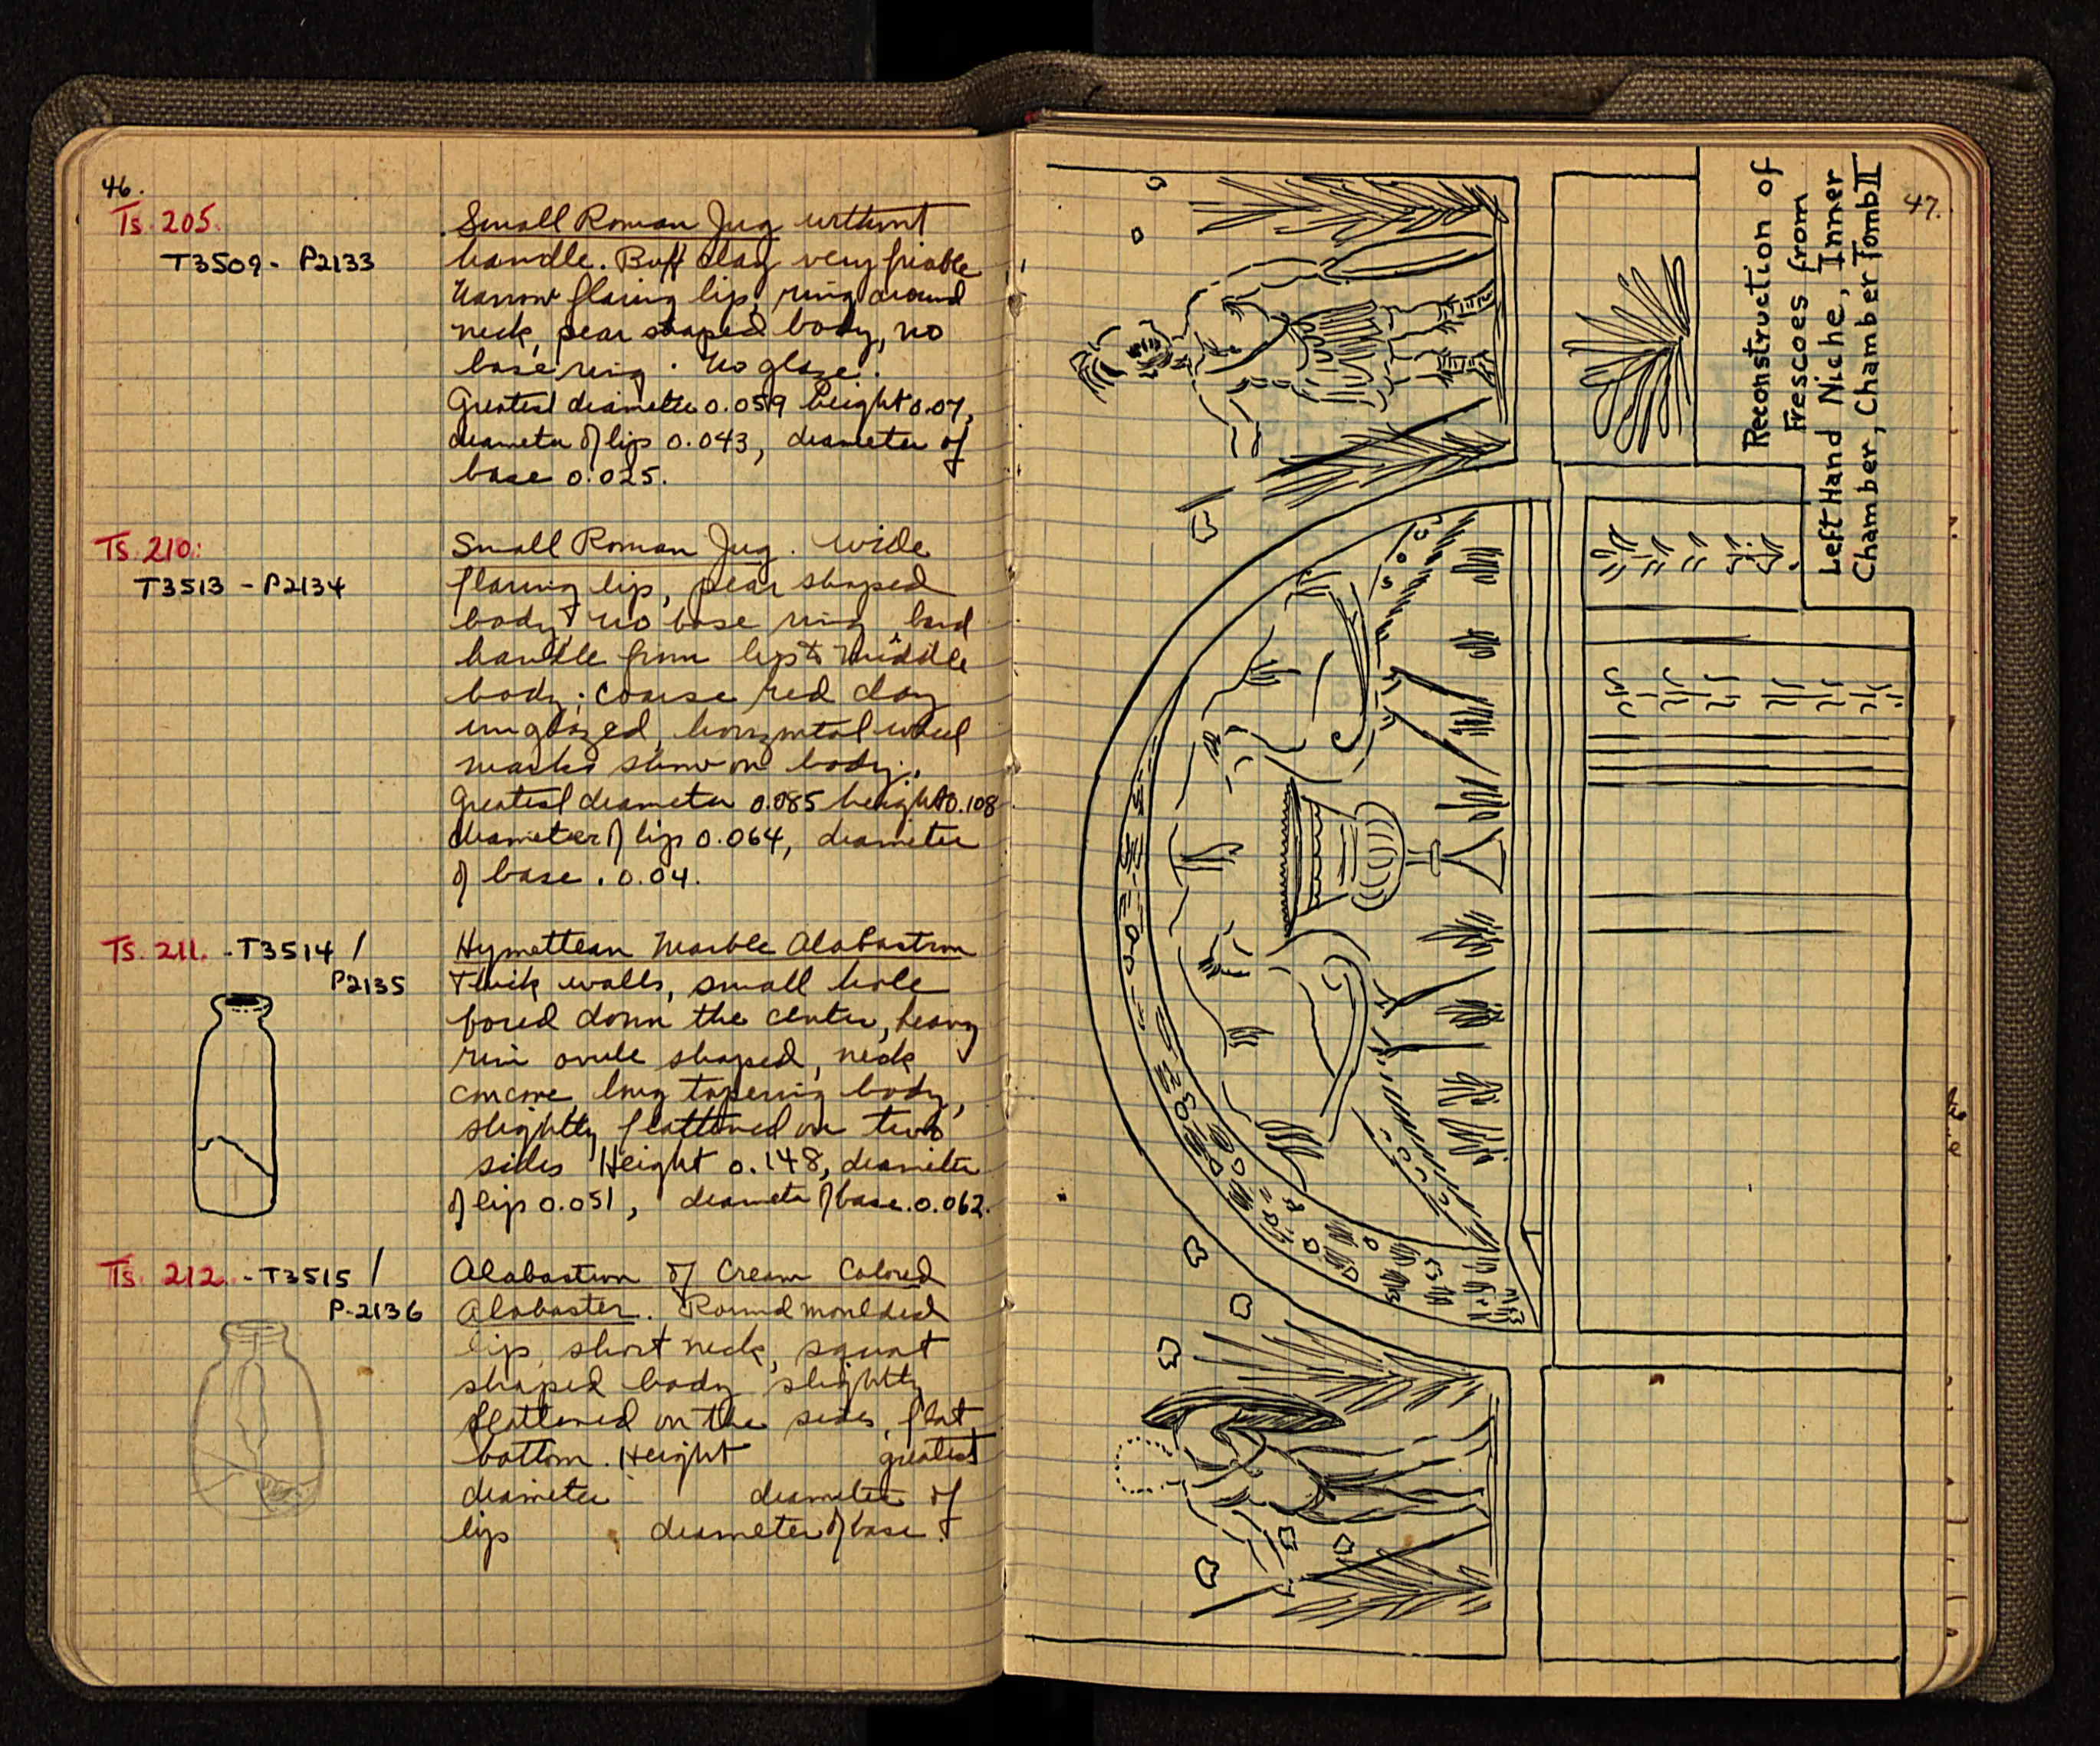 46.
Ts. 205.
T3509 - P2133
Small Roman Jug without
handle. Buff clay very friable
Narrow flaring lip, ring around
neck, pear shaped body, no
base ring. No glaze.
Greatest diameter 0.059 height 0.07,
diameter of lip 0.043, diameter of
base 0.025.
Ts. 210:
T3513 - P2134
Small Roman Jug. Wide
flaring lip, pear shaped
body, no base ring
handle from lip to middle
body; coarse red clay
unglazed, horizontal wheel
marks show on body.
Greatest diameter 0.085 height 0.108
diameter of lip 0.064, diameter
of base. 0.04.
Ts. 211. - T3514 /
P2135
Hymettean Marble Alabastron
Thick walls, small hole
bored down the center, heavy
rim ovule shaped, neck
concave, long tapering body,
slightly flattened on two
sides Height 0.148, diameter
of lip 0.051, diameter of base. 0.062.
Ts. 212. - T3515 /
P-2136
Alabastron of Cream Colored
Alabaster. Round moulded
lip, short neck, squat
shaped body slightly
flattened on the sides, flat
bottom. Height greatest
diameter diameter of
lip diameter of base.
47.
Reconstruction of
Frescoes from
Left Hand Niche, Inner
Chamber, Chamber Tomb II